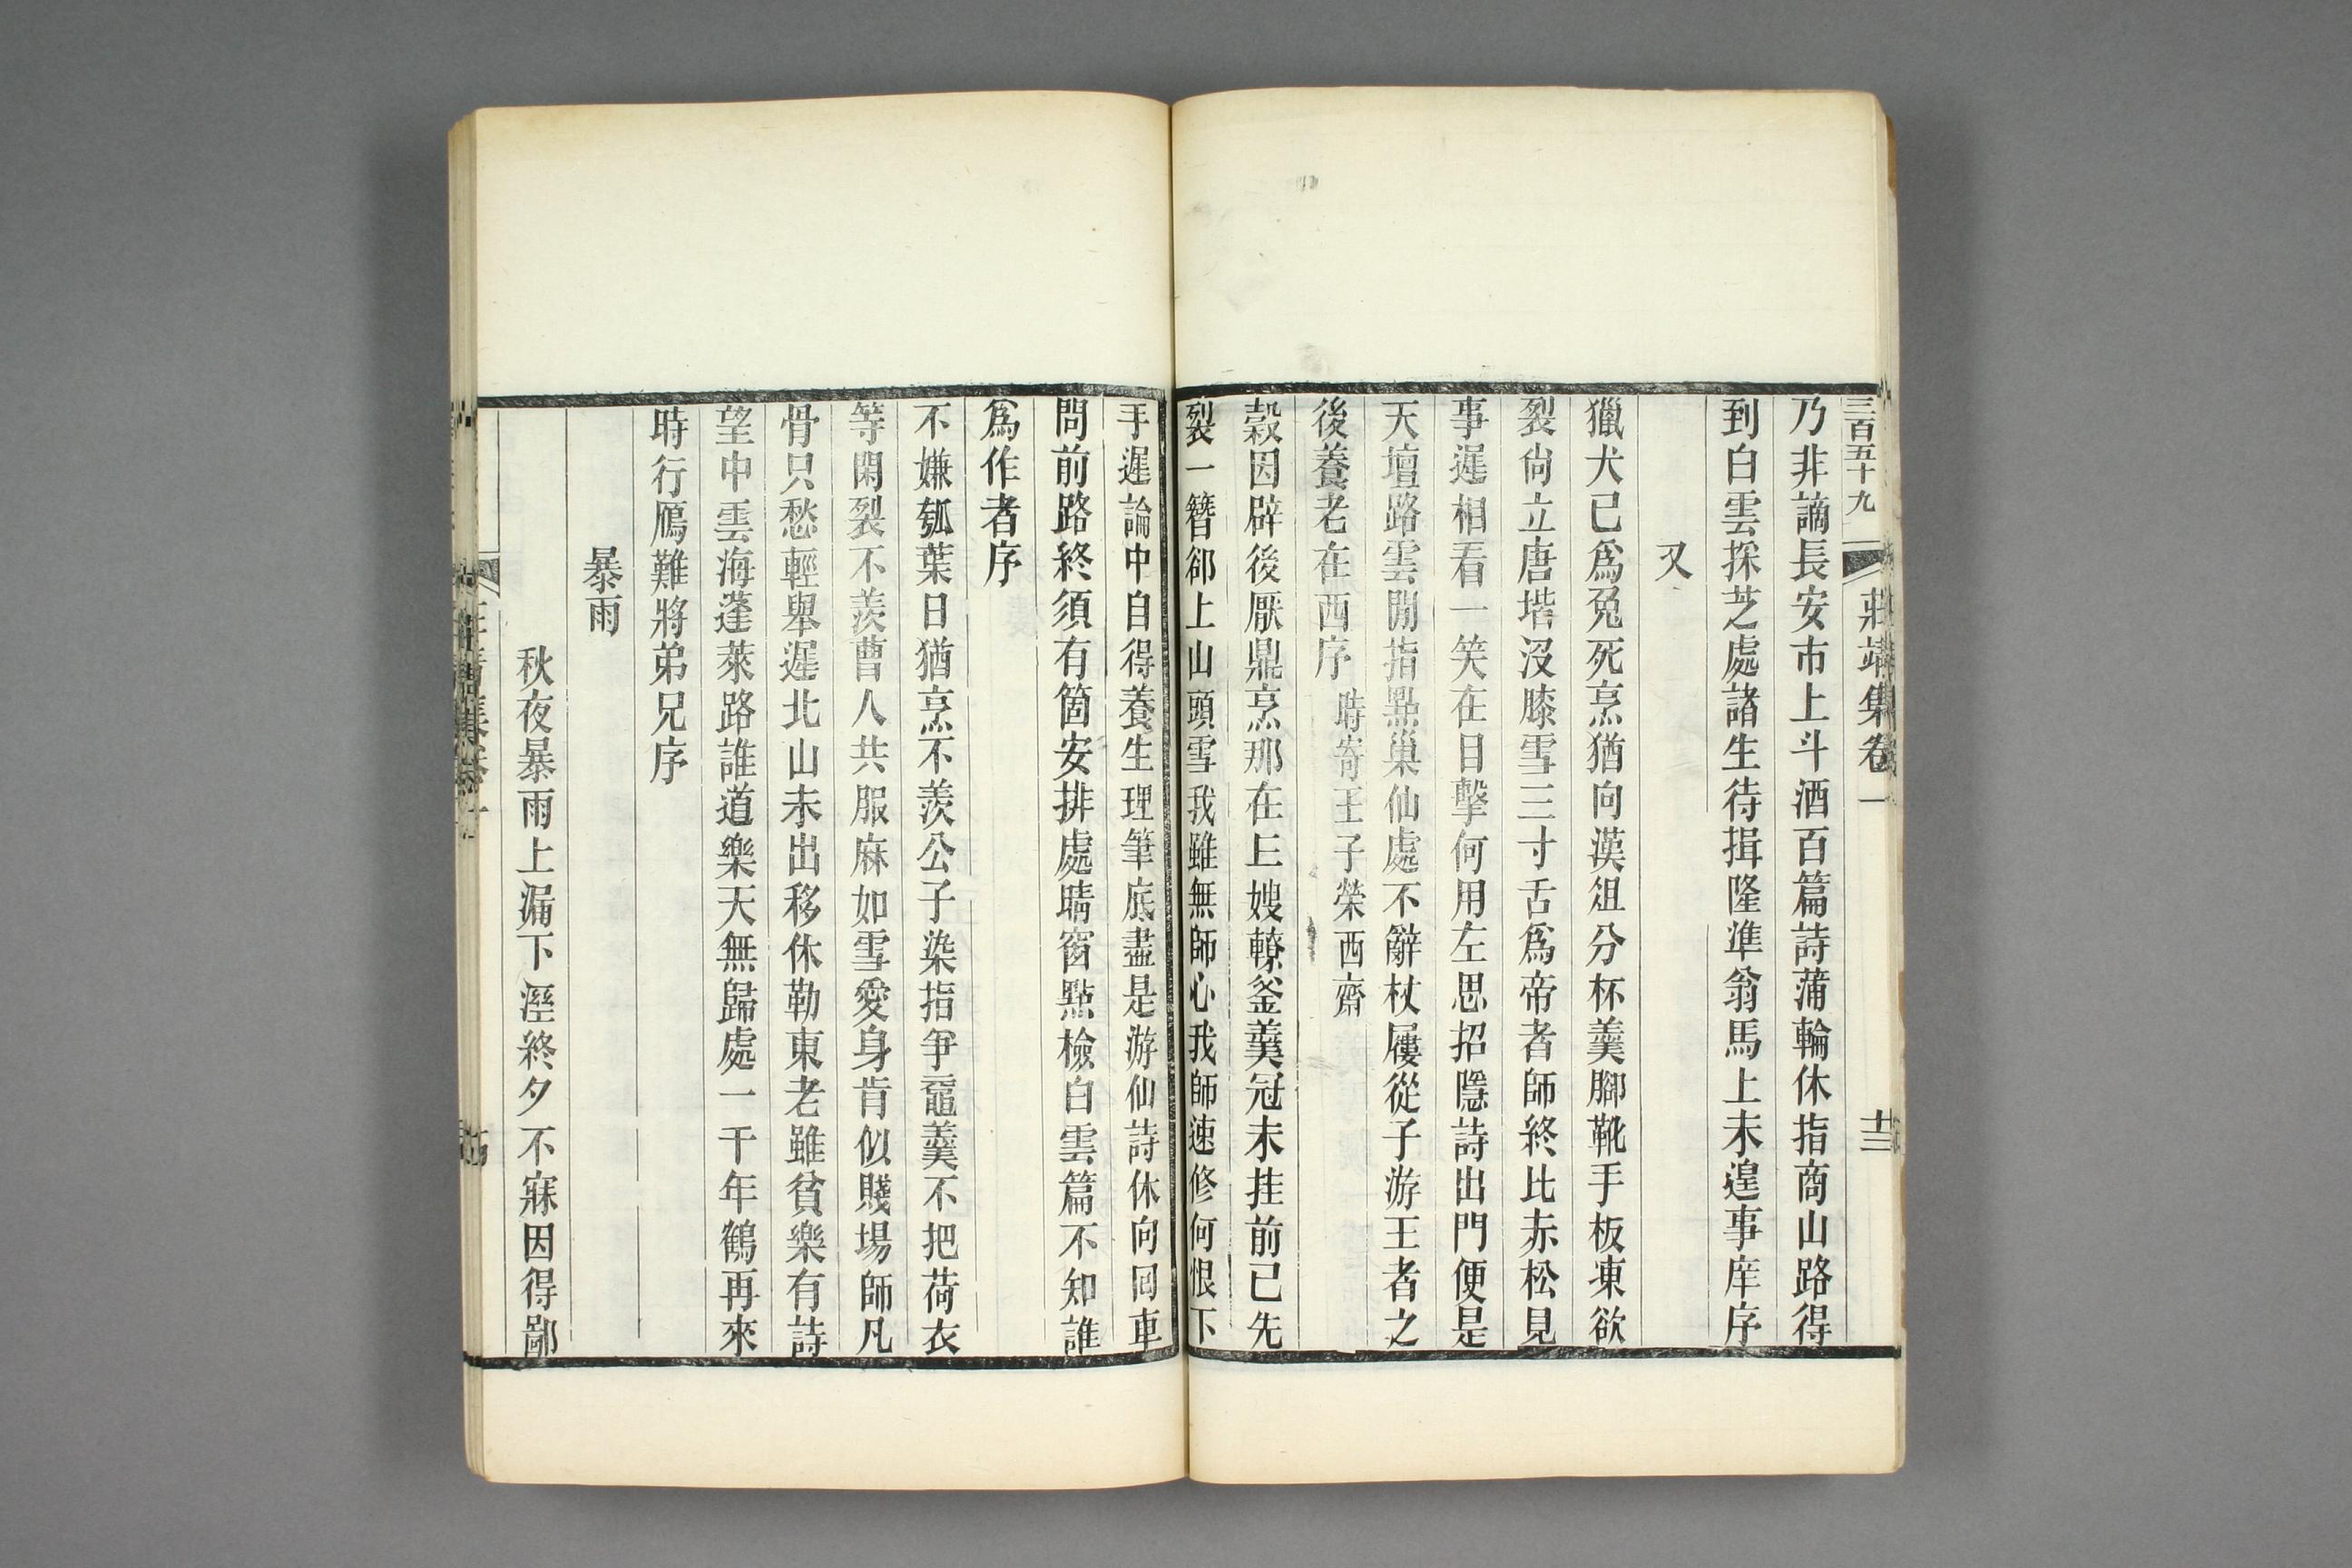 三百五十九
莊靖集卷一
十三
乃非謫長安市上斗酒百篇詩蒲輪休指商山路得
到白雲採芝處諸生待揖隆準翁馬上未遑事庠序
又
獵犬已爲兔死烹猶向漢俎分杯羹腳靴手板凍欲
裂尙立唐堦沒膝雪三寸舌爲帝者師終比赤松見
事遲相看一笑在目擊何用左思招隱詩出門便是
天壇路雲閒指點巢仙處不辭杖屨從子游王者之
後養老在西序時寄王子榮西齋
穀因辟後厭鼎烹那在上嫂轑釜羹冠未挂前已先
裂一簪郤上山頭雪我雖無師心我師速修何恨下
手遲論中自得養生理筆底盡是游仙詩休向回車
問前路終須有箇安排處晴窗點檢白雲篇不知誰
爲作者序
不嫌瓠葉日猶烹不羨公子染指爭黿羹不把荷衣
等閑裂不羨曹人共服麻如雪愛身肯似賤場師凡
骨只愁輕舉遲北山未出移休勒東老雖貧樂有詩
望中雲海蓬萊路誰道樂天無歸處一千年鶴再來
時行鴈難將弟兄序
暴雨
秋夜暴雨上漏下溼終夕不寐因得鄙